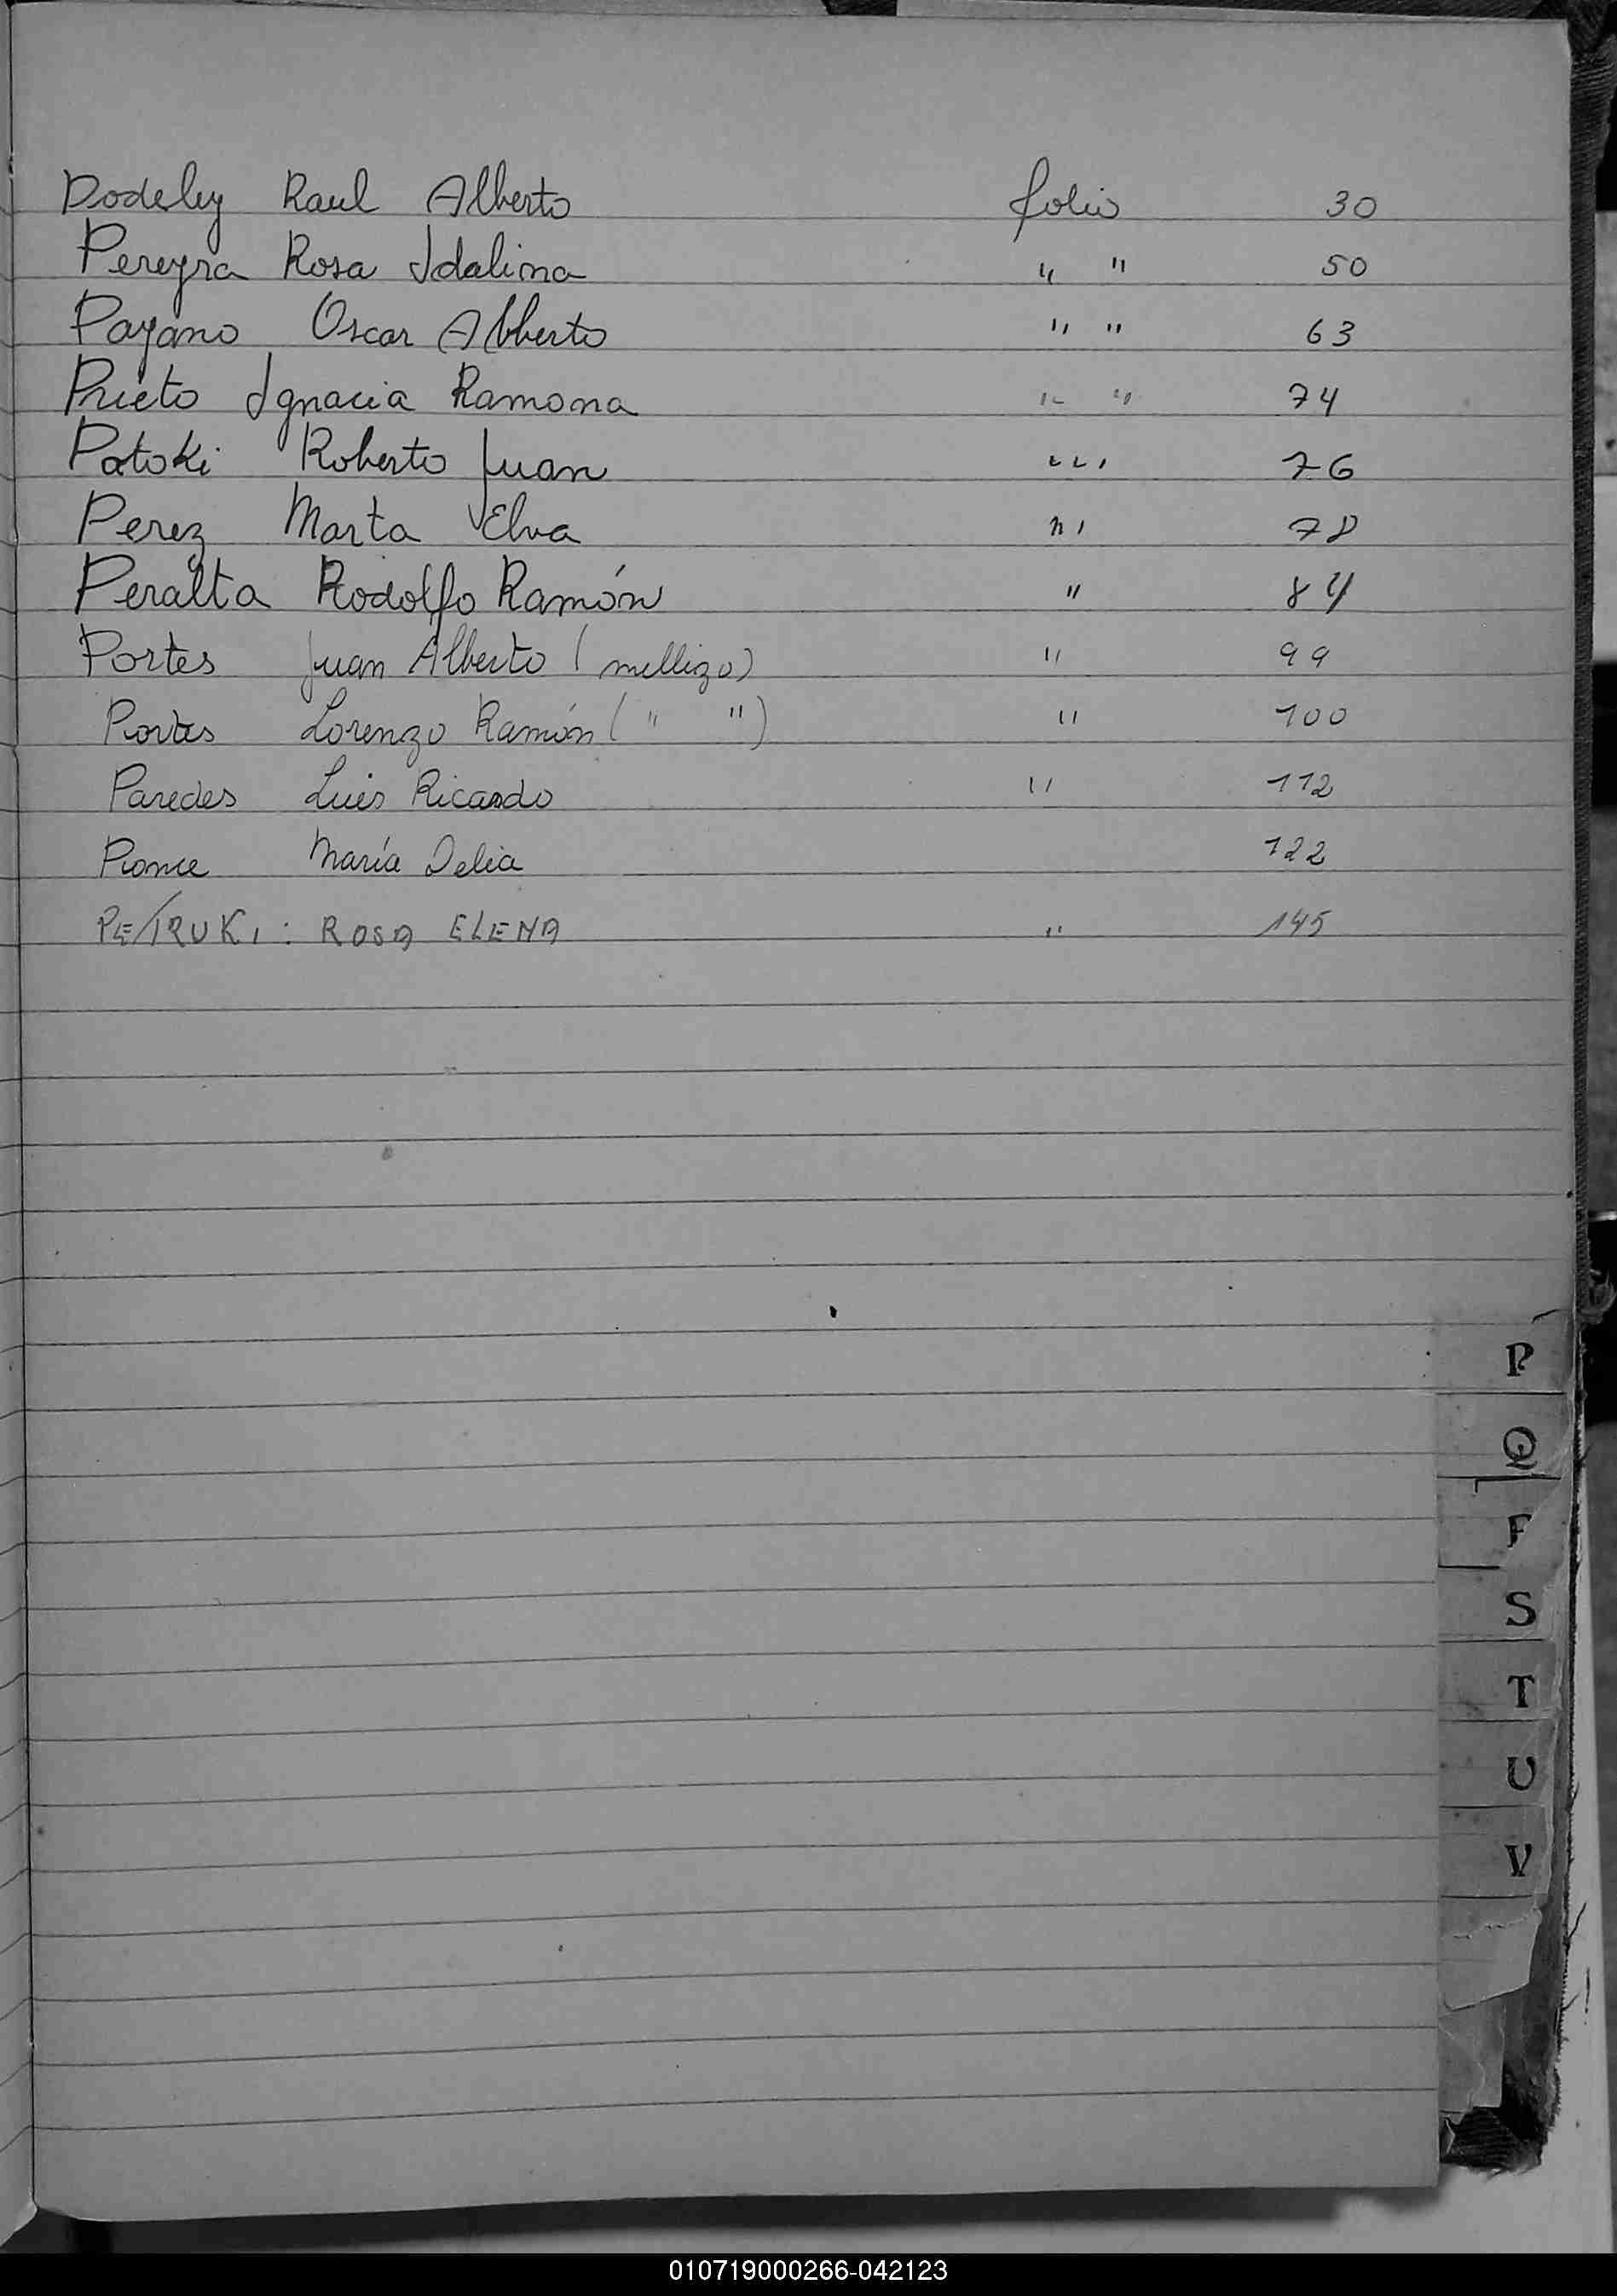 Podeley Raul Alberto folio 30
Pereyra Rosa Idalina " " 50
Payano Oscar Alberto " " 63
Prieto Ignacia Ramona " " 74
Patoki Roberto Juan " " 76
Perez Marta Elva " " 78
Peralta Rodolfo Ramón " 84
Portes Juan Alberto (mellizo) " 99
Portes Lorenzo Ramón ( " " ) " 100
Paredes Luis Ricardo " 112
Ponce María Delia 122
PETRUKI: ROSA ELENA " 145
P
Q
S
T
U
V
010719000266-042123